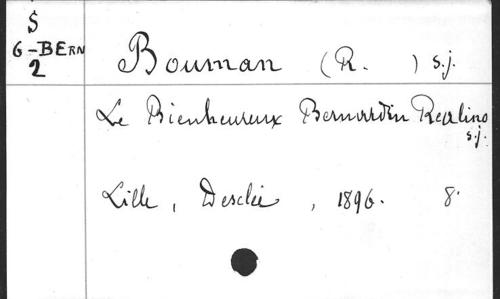 S
6-BERN
2
Bouman (R. ) s.j.
Le Bienheureux Bernardin Realino
s.j.
Lille, Desclée, 1896. 8.